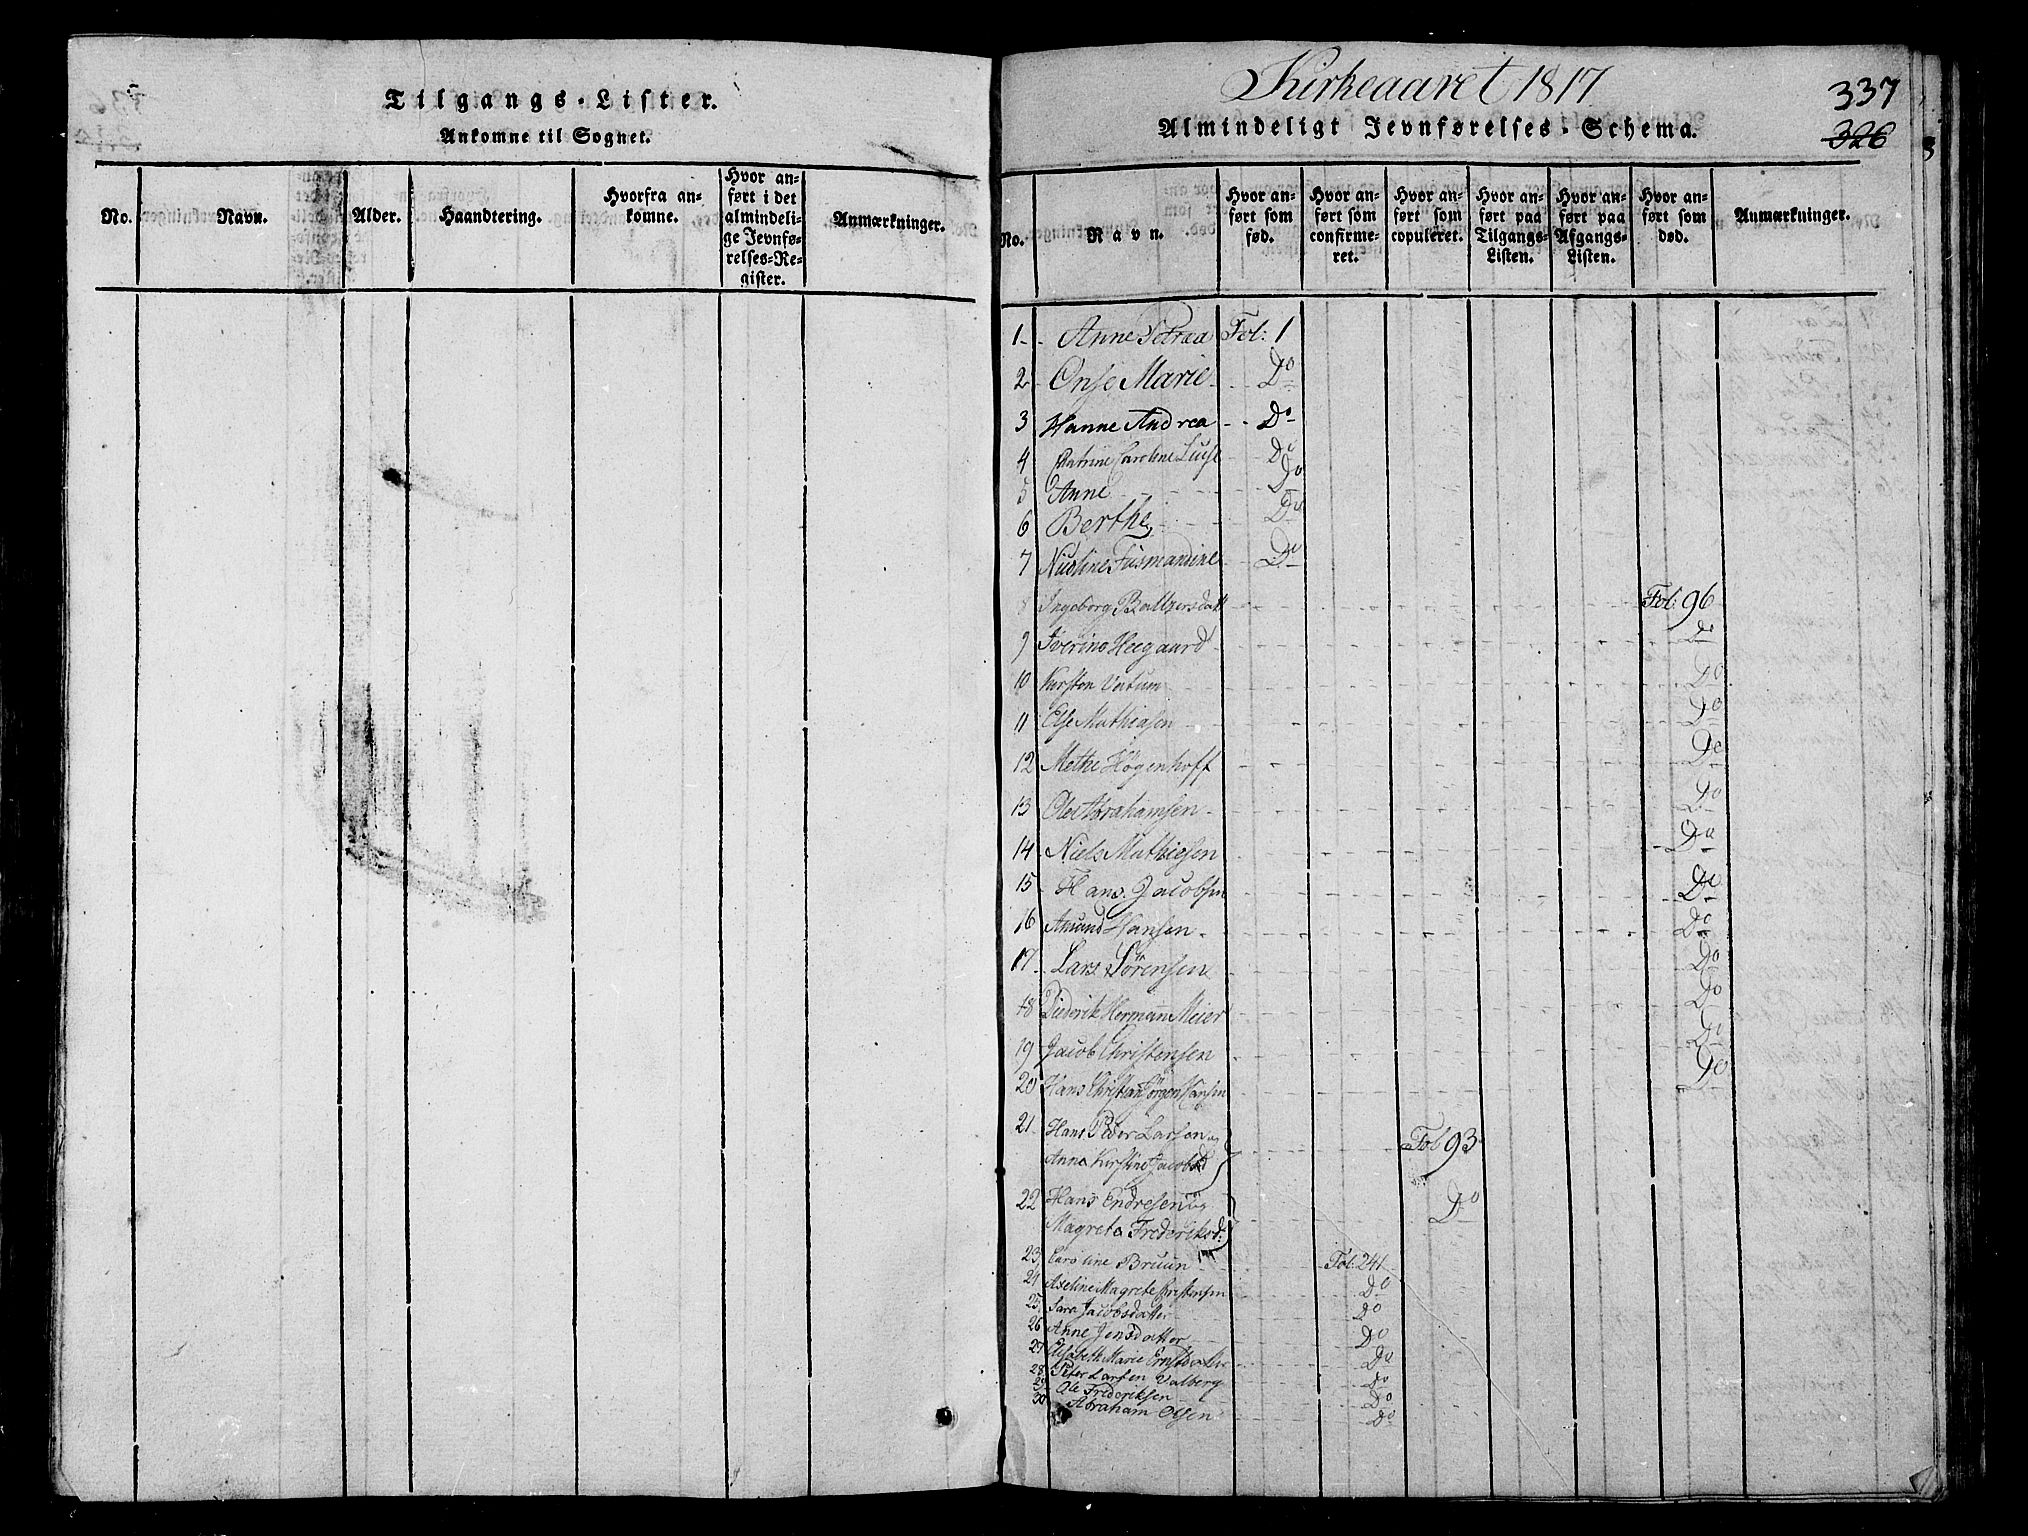 Tilgangs-Lister.
Ankomne til Sognet.
No.
Navn.
Alder.
Haandtering.
Hvorfra an-
komne.
Hvor an-
ført i det
almindeli-
ge Jevnfø-
relses-Re-
gister.
Anmærkninger.
Kirkeaaret 1817
337
326
Almindeligt Jevnførelses-Schema.
No.
Navn.
Hvor an-
ført som
fød.
Hvor an-
ført som
confirme-
ret.
Hvor an-
ført som
copuleret.
Hvor an-
ført paa
Tilgangs-
Listen.
Hvor an-
ført paa
Afgangs-
Listen.
Hvor an-
ført som
død.
Anmærkninger.
1 Anne Petraa Fol: 1
2 Onse Marie Do
3 Hanne Andrea Do
4 Catrine Caroline Luise Do
5 Anne Do
6 Berthe Do
7 Do
8 Ingeborg Baltzersdatt Fol: 96
9 Iverine Heegaard Do
10 Kirsten Do
11 Else Mathiesen Do
12 Methe Høgenhoff Do
13 Ole Abrahamsen Do
14 Niels Mathiesen Do
15 Hans Jacobsen Do
16 Amund Hansen Do
17 Lars Sørensen Do
18 Diederik Hermann Meier Do
19 Jacob Christensen Do
20 Hans Christian Jørgen Hansen Do
21 Hans Peder Larsen og
Anne Kirstine Jacobsd Fol 93
22 Hans Endresen og
Magrete Frederiksd: Do
23 Caroline Bruun Fol: 241
24 Axeline Magrete Christensen Do
25 Sara Jacobsdatter Do
26 Anne Jensdatter Do
27 Elisabeth Marie Ernstdatter Do
28 Peter Larsen Valberg Do
29 Ole Frederiksen Do
30 Abraham Olsen Do